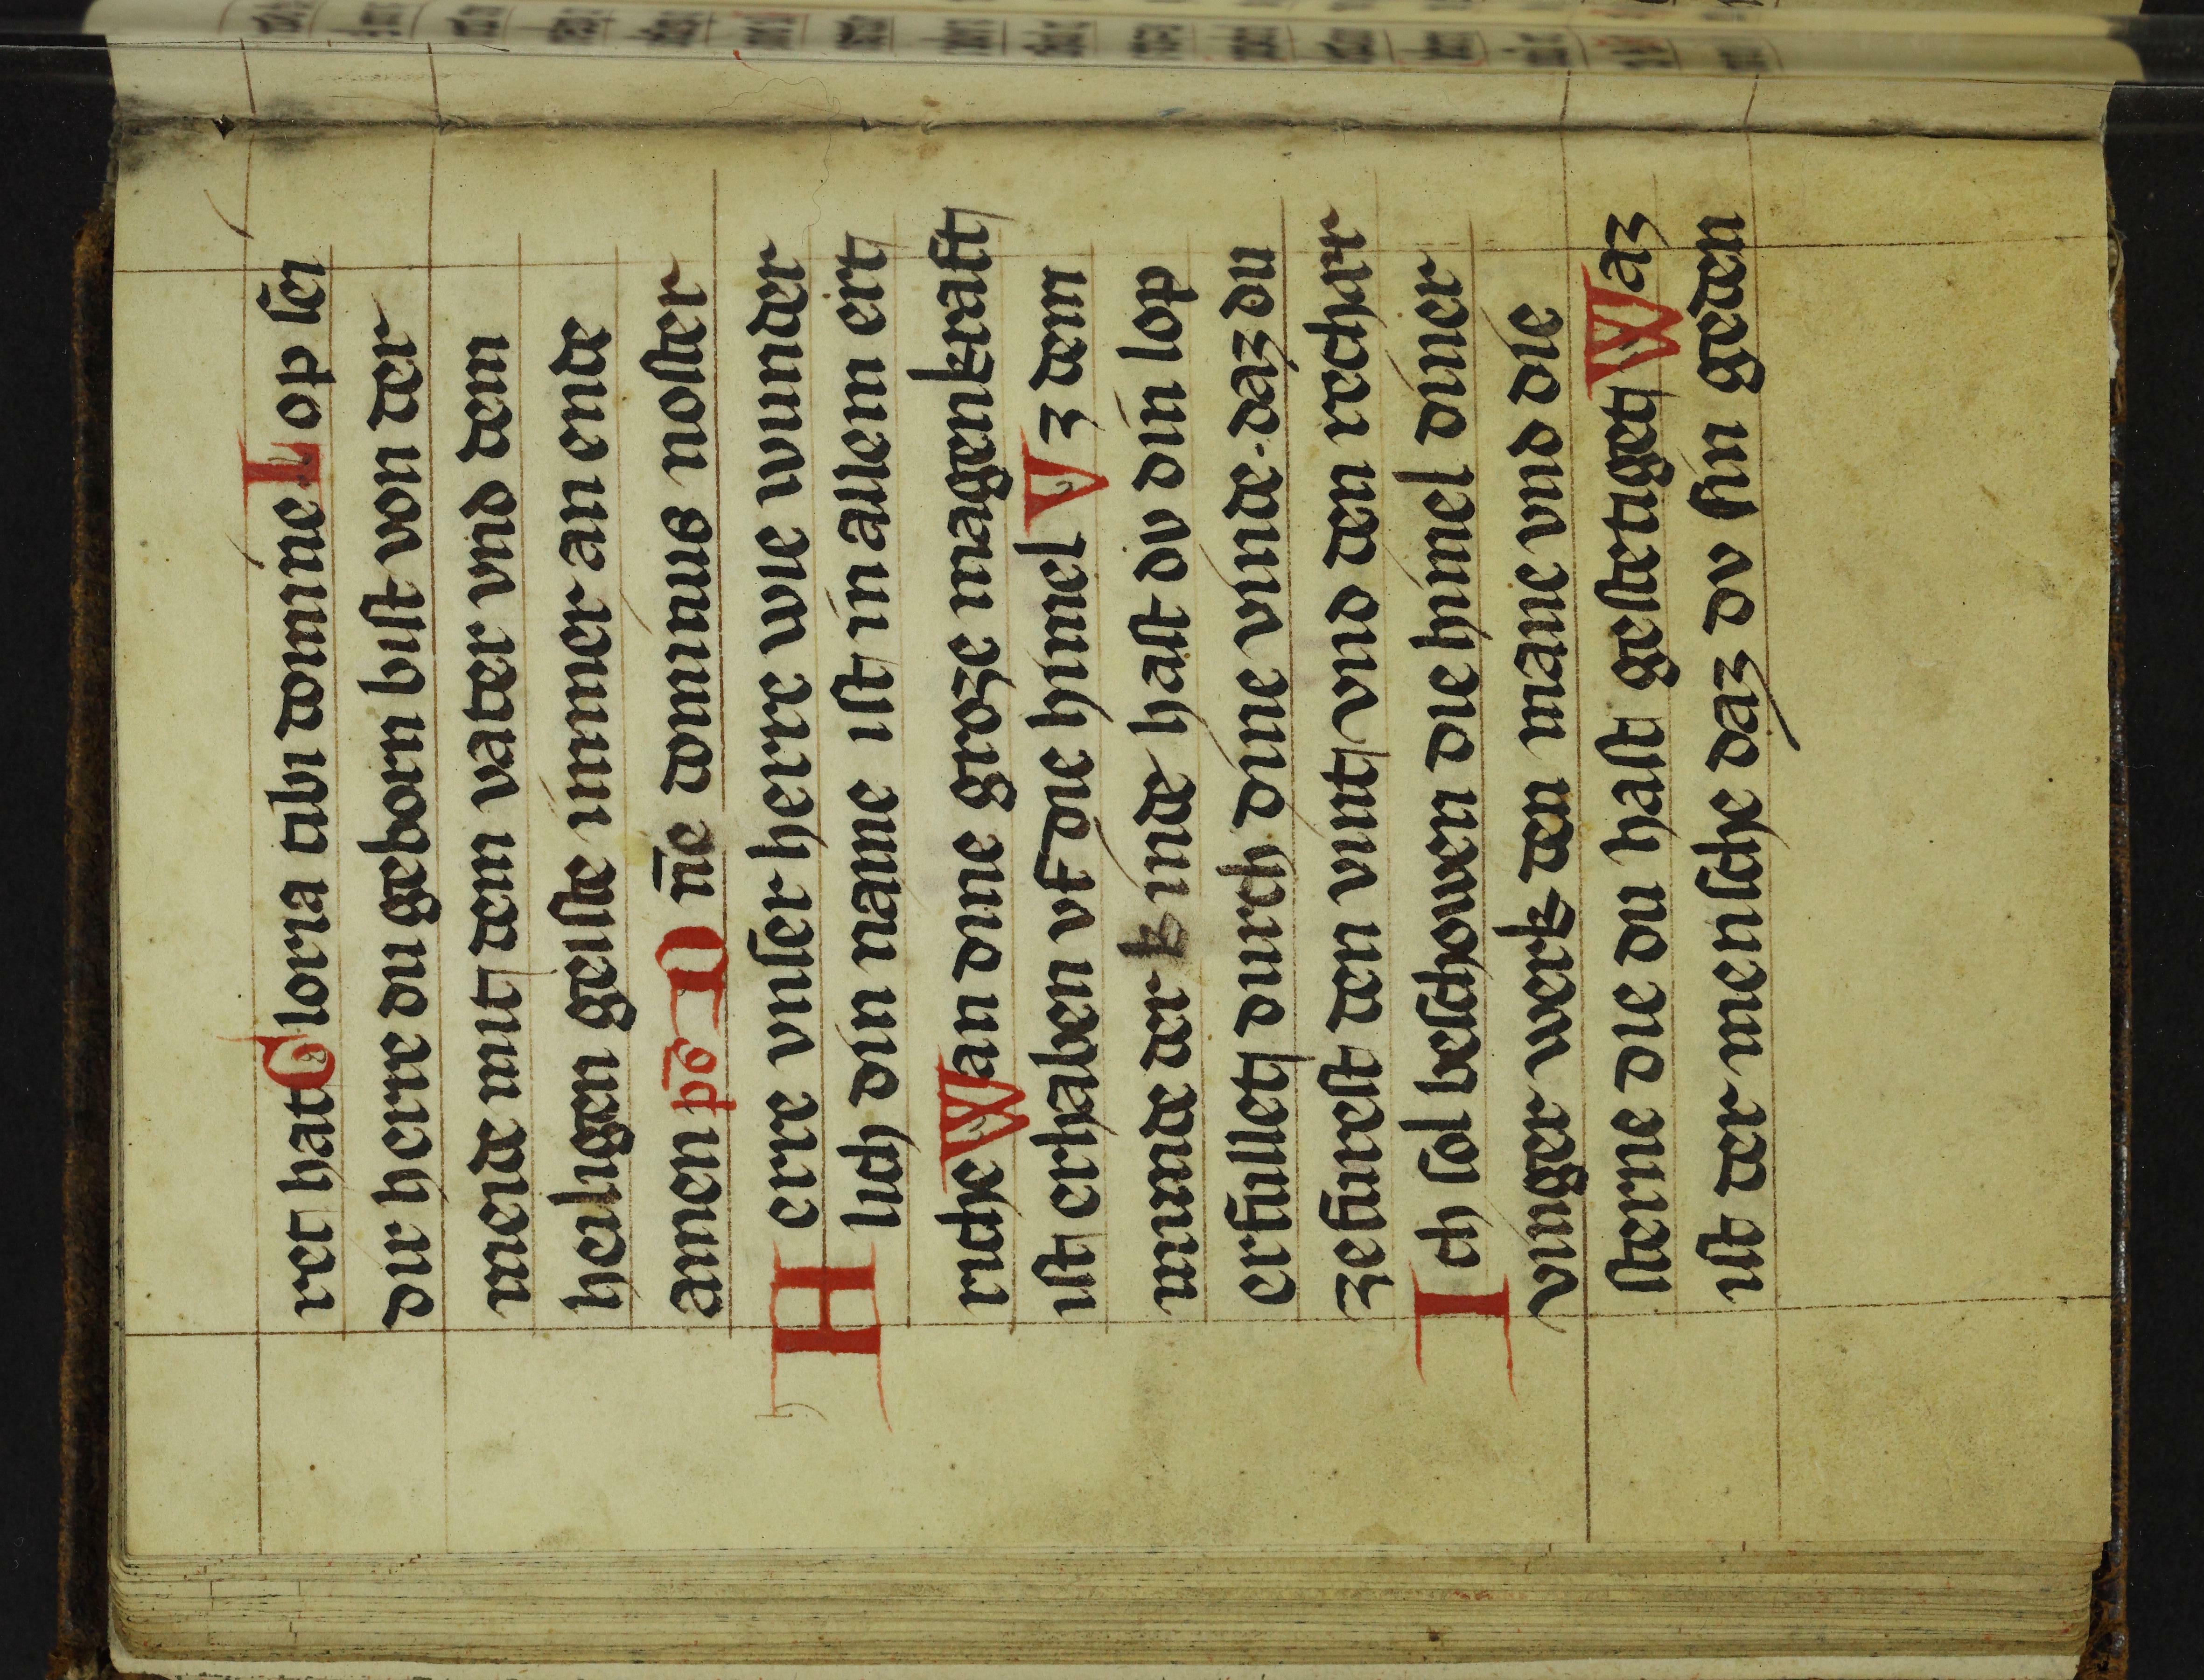 ret hat Gloria tibi domine Lop sei
dir herre du geborn bist von der
meide mit dem vater vnd dem
heiligen geiste immer an ende
amen pẜ Dn̄e dominus noster
Herre vnser herre wie wunder
lich din name ist in allem ert
riche Wan dine groze magenkraft
ist erhaben vf die himel Vz dem
munde der kinde hast dv din lop
erfullet durch dine vinde · daz du
zefurest den vint vnd den rechar
Ich sol beschowen die himel diner
vinger werk den mane vnd die
sterne die du hast gestetiget Waz
ist der mensche daz dv sin geden